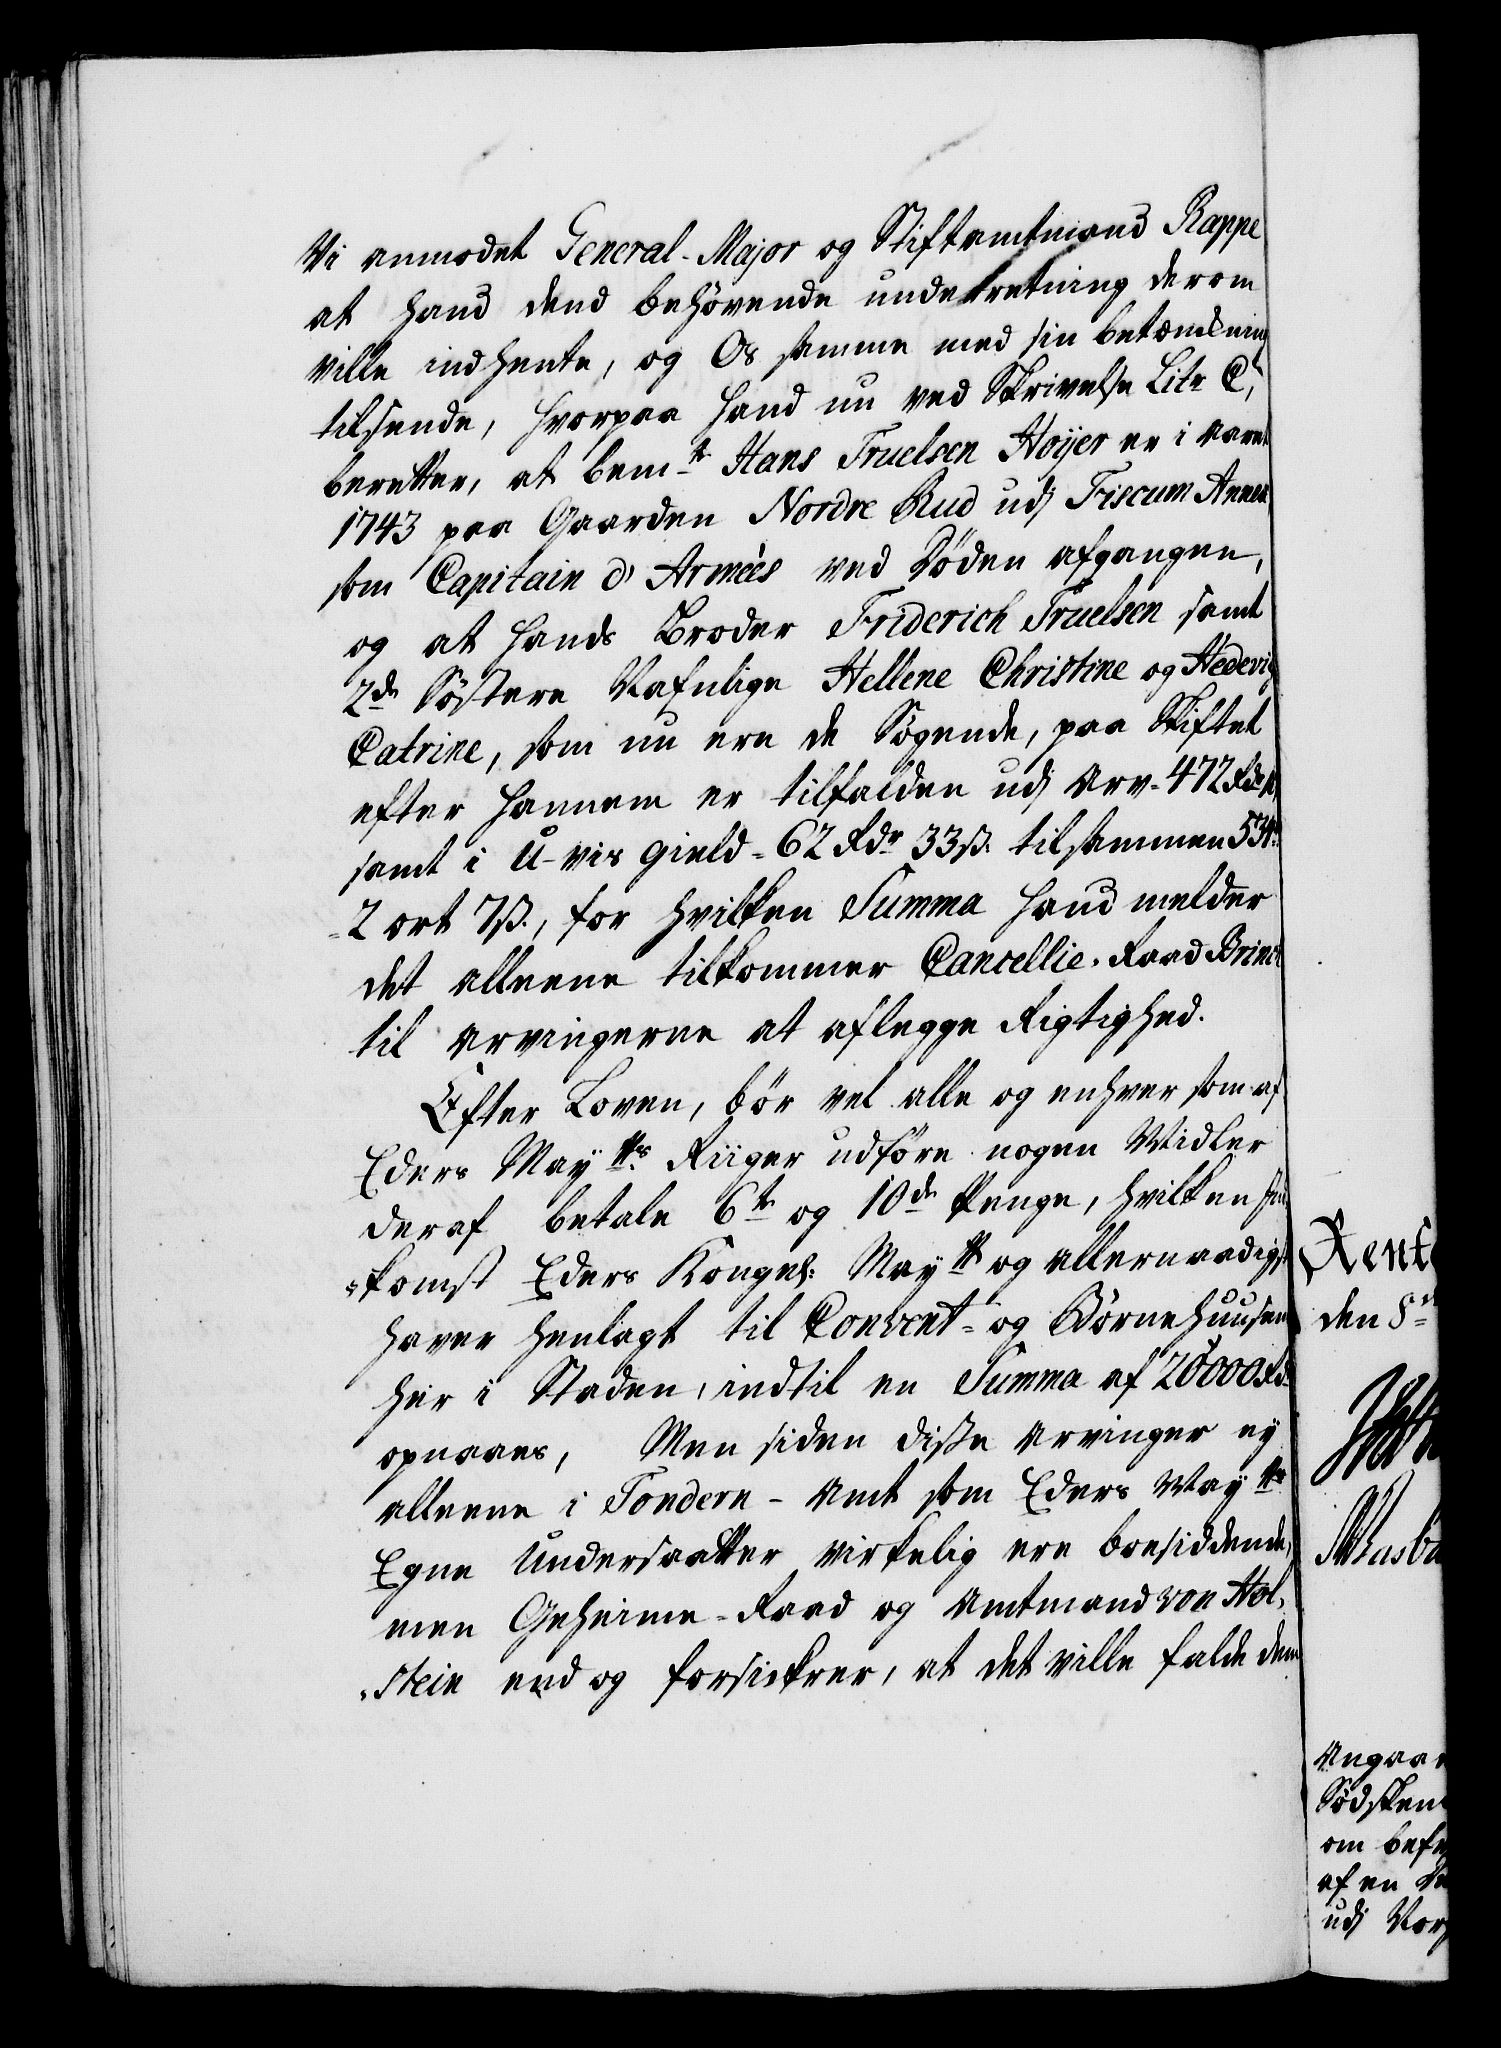 Vi anmodet General-Major og Stiftamtmand Rappe
at hand dend behövende underretning derom
ville indhente, og Os samme med sin betænkning
tilsende, hvorpaa hand nu ved Skrivelse Litr C,
beretter, at bem.te Hans Truelsen Hoÿer er i Aaret
1743 paa Gaarden Nordre Rud udj Fiscum Annex
som Capitain d' Armées ved Döden afgangen,
og at hands Broder Friderich Truelsen samt
2de Söstere Nafnlige Hellene Christine og Hedevig
Catrine, som nu ere de Sögende, paa Skiftet
efter hannem er tilfalden udj Arv - 472 Rdr
samt i U-vis gield = 62 Rdr 33 ß. tilsammen 534
= 2 ort 7 ß., for hvilken Summa hand melder
det alleene tilkommer Cancellie-Raad Brinch
til Arvingerne at aflegge Rigtighed.
Efter Loven, bör vel alle og enhver som af
Eders Maÿtts Riiger udföre nogen Midler
deraf betale 6te og 10de Penge, hvilken Ind
=komst Eders Kongel: Maÿtt og allernaadigst
haver henlagt til Convent- og Börnehuusene
her i Staden, indtil en Summa af 20000 Rd
opnaaes, Men siden disse Arvinger eÿ
alleene i Tondern - Amt som Eders Maÿtts
Egne Undersaatter virkelig ere boesiddende,
men Geheime-Raad og Amtmand von Hol,
,stein end og forsickrer, at det ville falde dem
den 8de
om
af en
udj